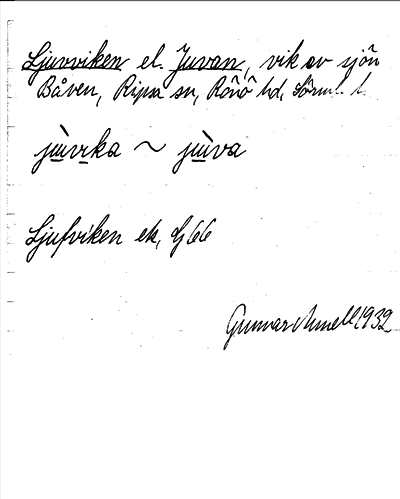 Ljuvviken el. Juvan, vik av sjön
Båven, Ripsa sn, Rönö hd,
jùvika ~ jùva
Ljufviken ek, Gj66
Gunnar 1932